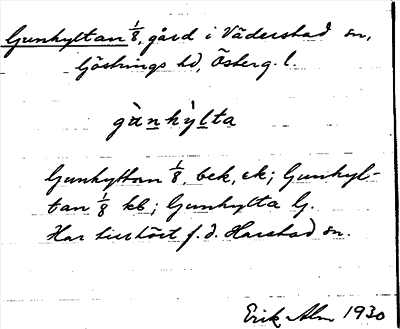 Gunhyltan 1/8, gård i Väderstad sn,
Göstrings hd, Österg. l.
gùnhy̆lta
Gunhyttan 1/8, bek, ek; Gunhyl-
tan 1/8 kb; Gunhylta G.
Har tillhört f. d. Harstad sn.
Erik Alm 1930